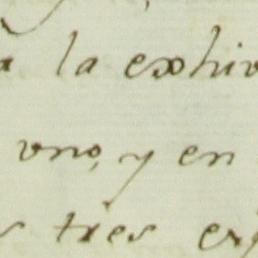 la exhiv
uno, y en
tres